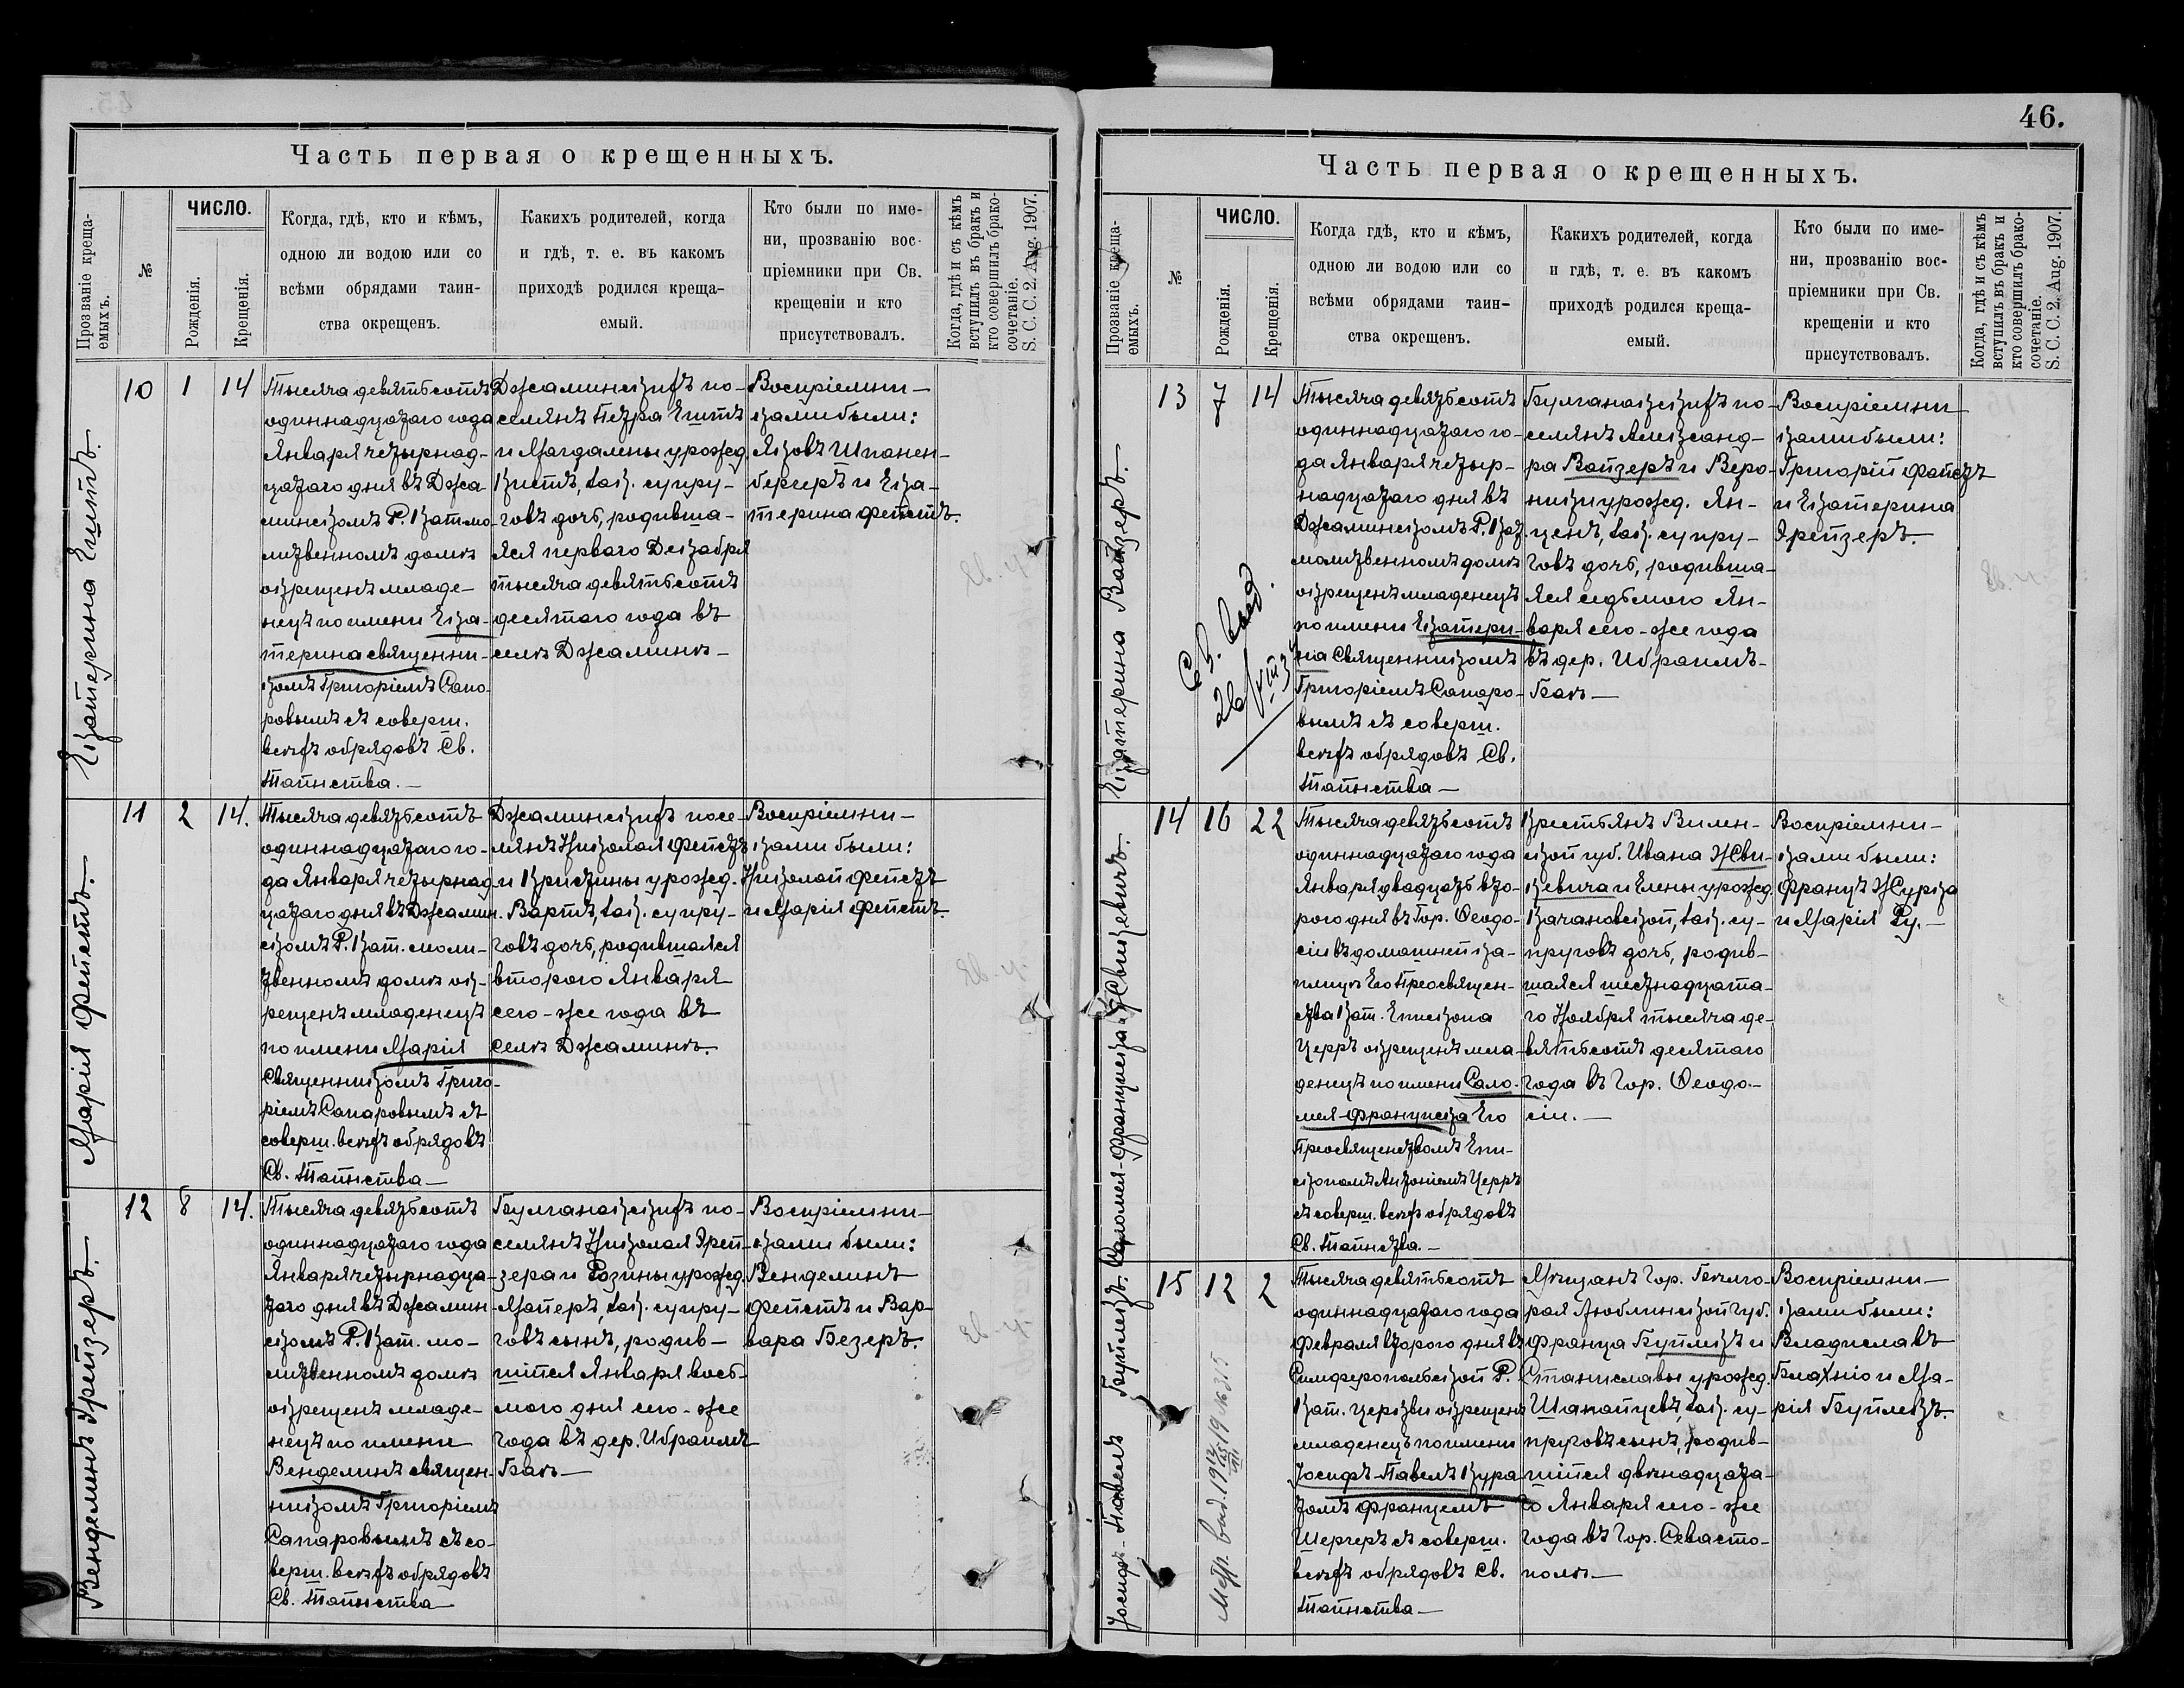 Часть первая о крещенныхъ.
Прозваніе креща-
емыхъ.
№
ЧИСЛО.
Рожденія.
Крещенія.
Когда, гдѣ, кто и кѣмъ,
одною ли водою или со
всѣми обрядами таин-
ства окрещенъ.
Какихъ родителей, когда
и гдѣ, т. е. въ какомъ
приходѣ родился креща-
емый.
Кто были по име-
ни, прозванію вос-
пріемники при Св.
крещеніи и кто
присутствовалъ.
Когда, гдѣ и съ кѣмъ
вступилъ въ бракъ и
кто совершилъ брако-
сочетаніе.
S. C. C. 2. Aug. 1907.
Екатерина Ештъ.
10
1
14
Тысяча девятьсотъ
одиннадцатаго года
Января четырнад-
цатаго дня въ Джа-
минскомъ Р. Кат. мо-
литвенномъ домѣ
окрещенъ младе-
нецъ по имени Ека-
терина священни-
комъ Григоріемъ Сапа-
ровымъ съ соверш.
всѣхъ обрядовъ Св.
Таинства.—
Джаминскихъ по-
селянъ Петра Ештъ
и Магдалены урожд.
Кистъ, зак. супру-
говъ дочь, родивша-
яся перваго Декабря
тысяча девятьсотъ
десятаго года въ
селѣ Джаминѣ—
Воспріемни-
ками были:
Яковъ Шпанен-
бергеръ и Ека-
терина Фейстъ.
Марія Фейстъ.
11
2
14.
Тысяча девятьсотъ
одиннадцатаго го-
да Января четырнад-
цатаго дня въ Джамин-
скомъ Р. Кат. моли-
твенномъ домѣ ок-
рещенъ младенецъ
по имени Марія
Священникомъ Григо-
ріемъ Сапаровымъ съ
соверш. всѣхъ обрядовъ
Св. Таинства—
Джаминскихъ посе-
лянъ Николая Фейстъ
и Кристины урожд.
Бартъ, зак. супру-
говъ дочь, родившаяся
второго Января
сего-же года въ
селѣ Джаминѣ.
Воспріемни-
ками были:
Николай Фейстъ
и Марія Фейстъ.
Венделинъ Грейзеръ.
12
8
14.
Тысяча девятьсотъ
одиннадцатаго года
Января четырнадца-
таго дня въ Джамин-
скомъ Р. Кат. мо-
литвенномъ домѣ
окрещенъ младе-
нецъ по имени
Венделинъ священ-
никомъ Григоріемъ
Сапаровымъ съ со-
верш. всѣхъ обрядовъ
Св. Таинства—
Булганакскихъ по-
селянъ Николая Грей-
зера и Розины урожд.
Майеръ, зак. супру-
говъ сынъ, родив-
шійся Января вось-
мого дня сего-же
года въ дер. Ибраимъ-
Баѣ—
Воспріемни-
ками были:
Венделинъ
Фейстъ и Вар-
вара Безеръ.
46.
Часть первая о крещенныхъ.
Прозваніе креща-
емыхъ.
№
ЧИСЛО.
Рожденія.
Крещенія.
Когда гдѣ, кто и кѣмъ,
одною ли водою или со
всѣми обрядами таин-
ства окрещенъ.
Какихъ родителей, когда
и гдѣ, т. е. въ какомъ
приходѣ родился креща-
емый.
Кто были по име-
ни, прозванію вос-
пріемники при Св.
крещеніи и кто
присутствовалъ.
Когда, гдѣ и съ кѣмъ
вступилъ въ бракъ и
кто совершилъ брако-
сочетаніе.
S. C. C. 2. Aug. 1907.
Екатерина Вайзеръ.
13
7
14
Тысяча девятьсотъ
одиннадцатаго го-
да Января четыр-
надцатаго дня въ
Джаминскомъ Р. Кат.
молитвенномъ домѣ
окрещенъ младенецъ
по имени Екатери-
на Священникомъ
Григоріемъ Сапаро-
вымъ съ соверш.
всѣхъ обрядовъ Св.
Таинства—
Булганакскихъ по-
селянъ Александ-
ра Вайзеръ и Веро-
ники урожд. Ян-
ценъ, зак. супру-
говъ дочь, родивша-
яся седьмого Ян-
варя сего-же года
въ дер. Ибраимъ-
Баѣ—
Воспріемни
ками были:
Григорій Фейстъ
и Екатерина
Грейзеръ.
Саломея-Франциска Жвикевичъ.
14
16
22
Тысяча девятьсотъ
одиннадцатаго года
Января двадцать вто-
рого дня въ Гор. Ѳеодо-
сіи въ домашней ка-
плицѣ Его Преосвящен-
ства Кат. Епископа
Церръ окрещенъ мла-
денецъ по имени Сало-
мея-Франциска Его
Преосвященствомъ Епи-
скопомъ Антоніемъ Церръ
съ соверш. всѣхъ обрядовъ
Св. Таинства.—
Крестьянъ Вилен-
ской губ. Ивана Жви-
кевича и Елены урожд.
Качановской, зак. су-
пруговъ дочь, родив-
шаяся шестнадцата-
го Ноября тысяча де-
вятьсотъ десятаго
года въ Гор. Ѳеодо-
сіи.—
Воспріемни-
ками были:
Францъ Журка
и Марія Ру.—
Іосифъ-Павелъ Буйлекъ.
15
12
2
Тысяча девятьсотъ
одиннадцатаго года
Февраля второго дня въ
Симферопольской Р.
Кат. церкви окрещенъ
младенецъ по имени
Іосифъ-Павелъ Кура-
томъ Францемъ
Шергеръ съ соверш.
всѣхъ обрядовъ Св.
Таинства—
Мѣщанъ Гор. Бѣлго-
рая Люблинской Губ.
Франца Буйлекъ и
Станиславы урожд.
Шапайцевъ, зак. су-
пруговъ сынъ, родив-
шійся двѣнадцата-
го Января сего-же
года въ Гор. Севасто-
полѣ—
Воспріемни-
ками были:
Владиславъ
Блахніо и Ма-
рія Буйлекъ.